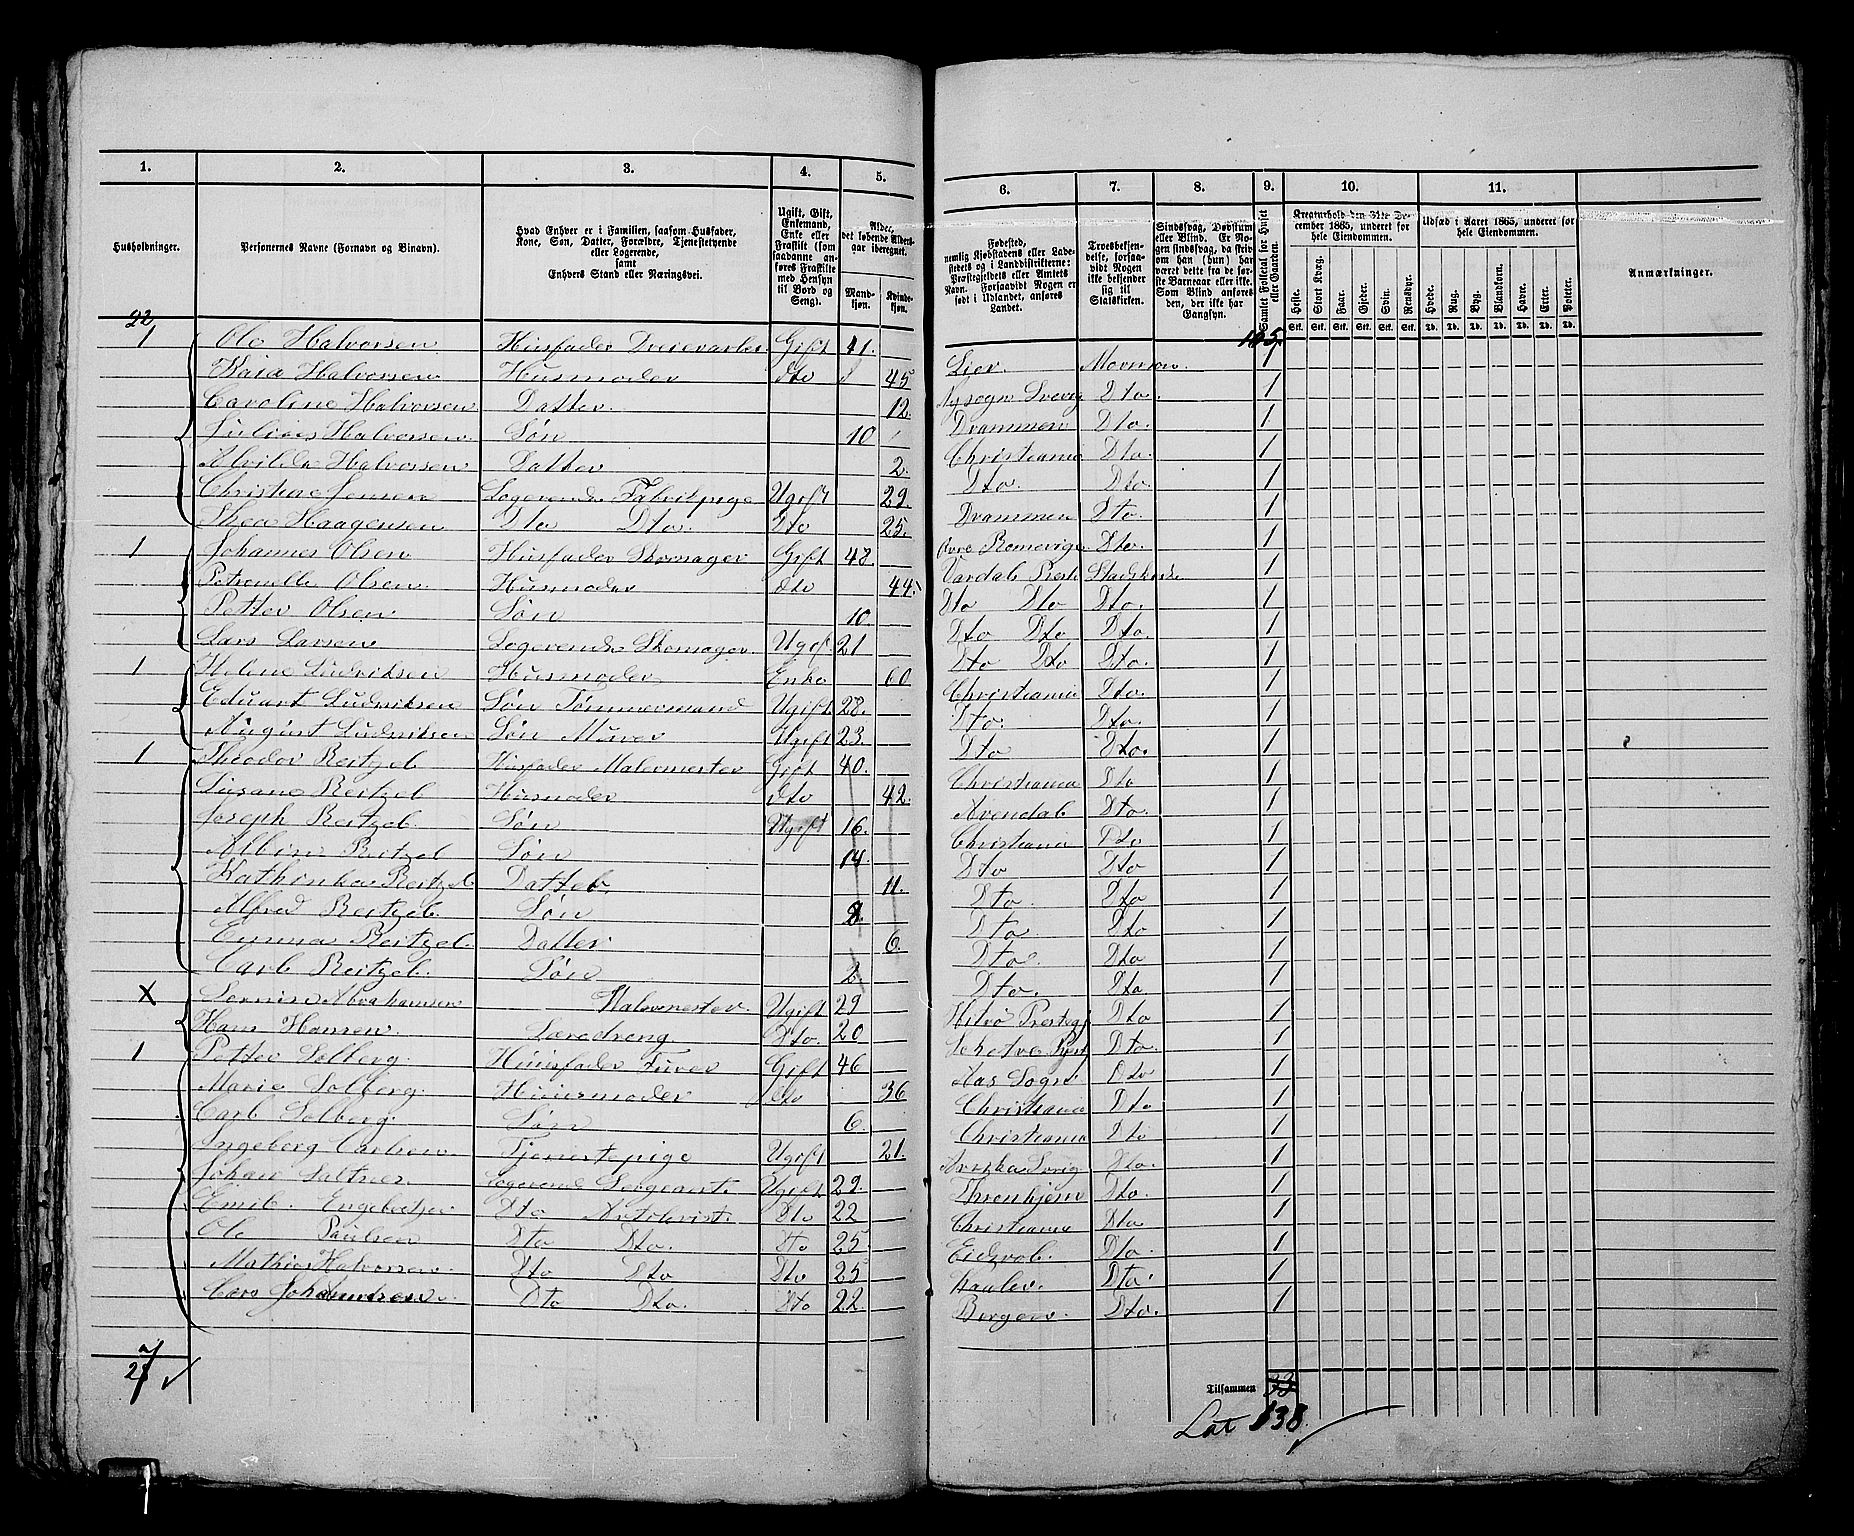 1. 2. 3. 4. 5. 6. 7. 8. 9. 10. 11.
Husholdninger.
Personernes Navne (Fornavn og Binavn).
Hvad Enhver er i Familien, saasom Husfader, Kone, Søn, Datter, Forældre, Tjenestetyende eller Logerende, samt Enhvers Stand eller Næringsvei.
Ugift, Gift, Enkemand, Enke eller Fraskilt (som saadanne anføres Fraskilte med Hensyn til Bord og Seng).
Alder, det løbende Aldersaar iberegnet.
Mandkjøn. Kvindekjøn.
Fødested, nemlig Kjøbstadens eller Ladestedets og i Landdistrikterne: Præstegjeldets eller Amtets Navn. Forsaavidt Nogen er født i Udlandet, anføres Landet.
Troesbekjendelse, forsaavidt Nogen ikke bekjender sig til Statskirken.
Sindssvag, Døvstum eller Blind. Er Nogen sindssvag, da skrives om han (hun) har været dette fra de første Barneaar eller ikke. Som Blind anføres den, der ikke har Gangsyn.
Samlet Folketal for Huset eller Gaarden.
Kreaturhold den 31te December 1865, underet for hele Eiendommen.
Heste. Stort Kvæg. Faar. Gjeder. Svin. Rensdyr.
Stk. Stk. Stk. Stk. Stk. Stk.
Udsæd i Aaret 1865, underet for hele Eiendommen.
Hvede. Rug. Byg. Blandkorn. Havre. Erter. Poteter.
Td. Td. Td. Td. Td. Td. Td.
Anmærkninger.
22 105
1 Ole Halvorsen Husfader Gift 41. Lier. Mormon. 1
Kaia Halvorsen Husmoder dto 45 Dto. 1
Caroline Halvorsen Datter. 12. Drammen Dto. 1
Julius Halvorsen Søn 10 Christiania Dto. 1
Alvilde Halvorsen Datter 2. Dto. Dto. 1
Christine Jensen Logerende Fabrikpige Ugift 29. Drammen Dto. 1
Thea Haagensen Dto Dto. Dto 25. Dto. 1
1 Johannes Olsen Husfader Skomager Gift 48. Vardal Prest. 1
Petronelle Olsen Husmoder dto 44. Dto Dto Dto. 1
Petter Olsen Søn 10. Dto Dto Dto. 1
Lars Larsen Logerende Skomager. Ugift 21 Dto Dto Dto. 1
1 Helene Ludviksen Husmoder Enke 60 Christiania Dto. 1
Eduart Ludviksen Søn Tømmermand Ugift 28. Dto. Dto. 1
August Ludviksen Søn Murer Ugift 23. Dto Dto. 1
1 Theodor Reitzel Husfader Malermester Gift 40. Christiania Dto 1
Susane Reitzel Husmoder dto 42. Arendal Dto. 1
Joseph Reitzel. Søn Ugift 16. Christiania Dto 1
Albin Reitzel Søn 14. Dto Dto 1
Kathinka Reitzel Datter 11. Dto. Dto 1
Alfred Reitzel. Søn 8. Dto Dto 1
Emma Reitzel. Datter. 6. Dto. Dto 1
Carl Reitzel. Søn 2 Dto. Dto 1
X Abrahamsen Malermester. Ugift 29 Dto 1
Hans Hansen. Læredreng. Dto. 20 Dto. 1
1 Petter Solberg. Husfader Gift 46 Aas Sogn Dto 1
Marie Solberg. Husmoder dto 36 Christiania Dto 1
Carl Solberg. Søn 6. Christiania Dto 1
Ingeborg Carlsen Tjenestepige Ugift 21. Dto. 1
Johan Logerende Sergeant. Ugift 29. Dto. 1
Emil. Engebretsen Dto Artilerist. Dto 22 Christiania Dto 1
Ole Paulsen Dto Dto. Dto 25 Eidsvol. Dto. 1
Mathias Halvorsen Dto Dto Dto 25 Dto. 1
Johannesen Dto Dto. Dto 22. Bergen. Dto. 1
27
Tilsammen 33
Lat 138